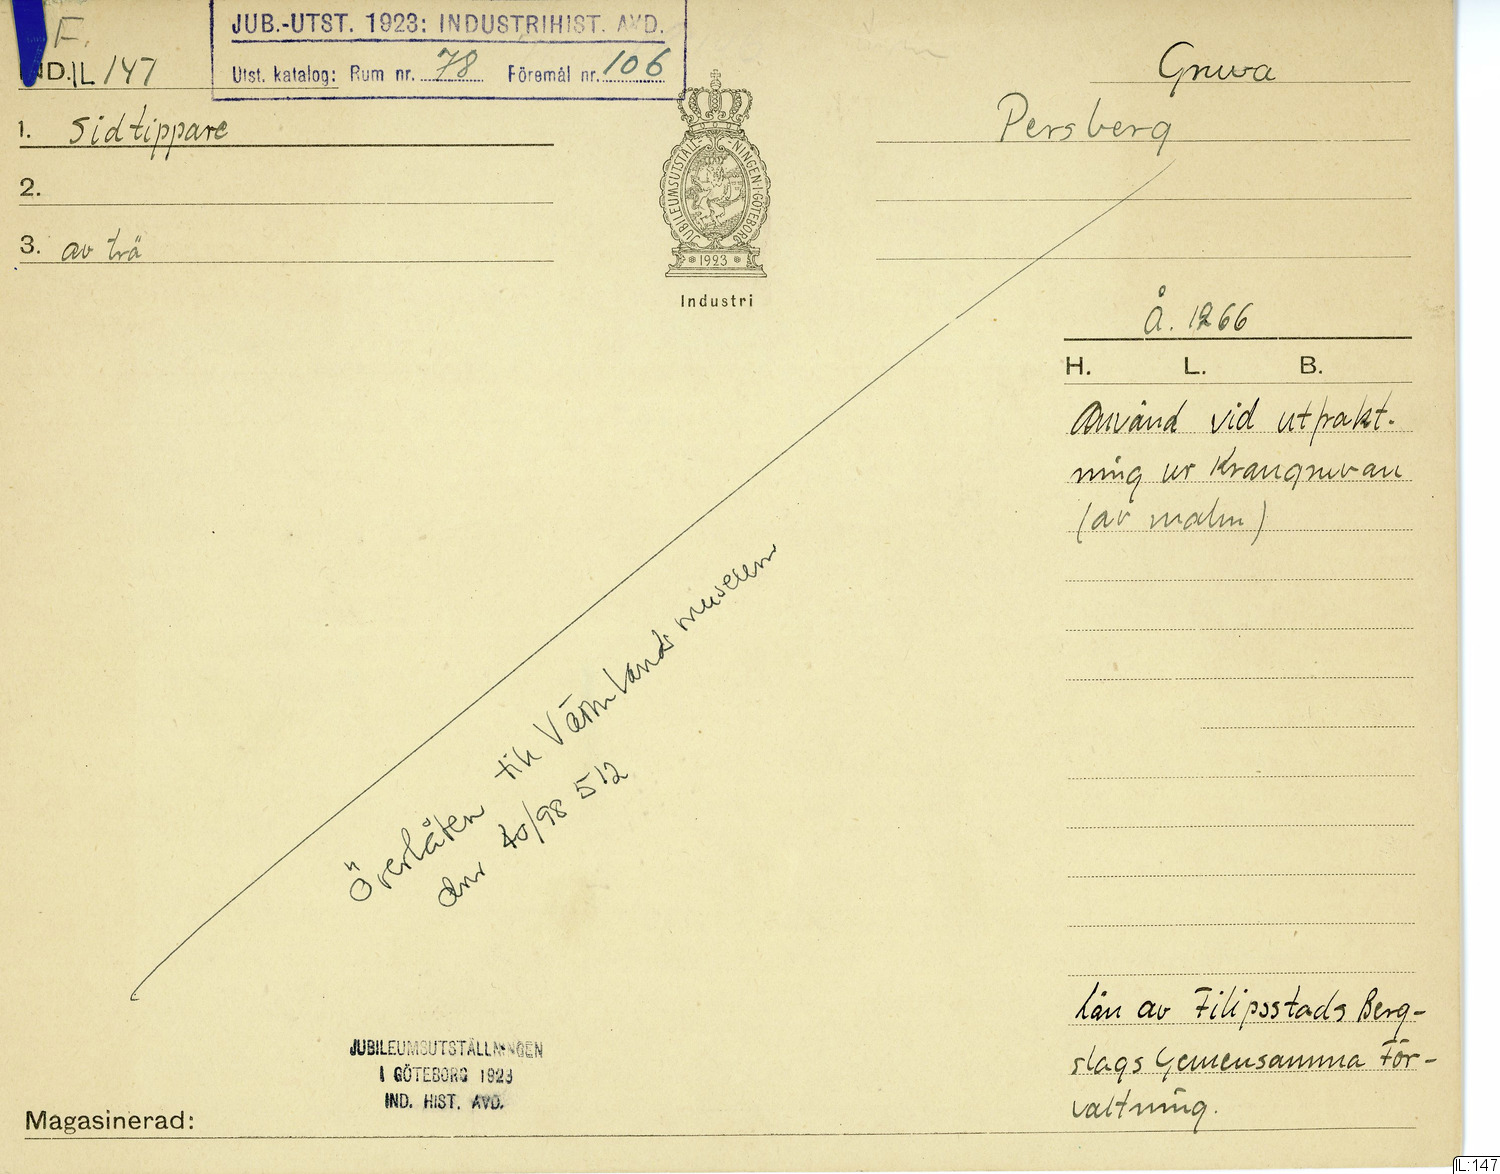 JUB.-UTST. 1923: INDUSTRIHIST. AVD.
Utst. katalog: Rum nr. 78 Föremål nr. 106
F.
IND.IL 147
1. Sidtippare
2.
3. av trä
JUBILEUMSUTSTÄLL-NINGEN·I·GÖTEBORG
1923
Industri
Gruva
Persberg
Å. 1266
H. L. B.
Använd vid utfrakt-
ning ur Krangruvan
(av malm)
Överlåten till Värmlands museum
dnr 40/98 512
Lån av Filipsstads Berg-
slags Gemensamma För-
valtning.
JUBILEUMSUTSTÄLLNINGEN
I GÖTEBORG 1923
IND. HIST. AVD.
Magasinerad:
IL:147